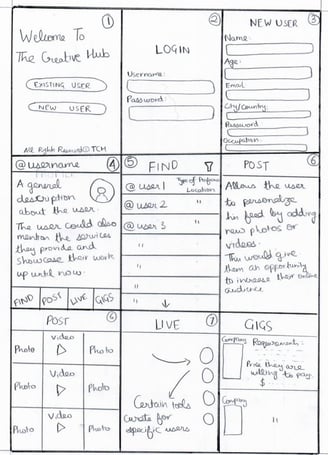 ①
Welcome To
The Creative Hub
EXISTING USER
NEW USER
All Rights Reserved © TCM
②
LOGIN
Username:
Password:
NEW USER ③
Name:
Age:
Email
City/Country:
Password
Occupation
@username ④
A general
description
about the user.
The user could also
mention the services
they provide and
showcase their work
up until now.
FIND POST LIVE GIGS
⑤ FIND
@user 1 Type of Profession
Location
@user 2 "
@user 3 "
"
"
"
POST ⑥
Allows the user
to personalize
his feed by adding
new photos or
videos.
This would give
them an opportunity
to increase their online
audience
POST ⑥
Photo Video Photo
Photo Video Photo
Photo Video Photo
LIVE ⑦
Certain tools
curate for
specific users
GIGS
Company Requirements:
Price they are
willing to pay.
$
Company
"